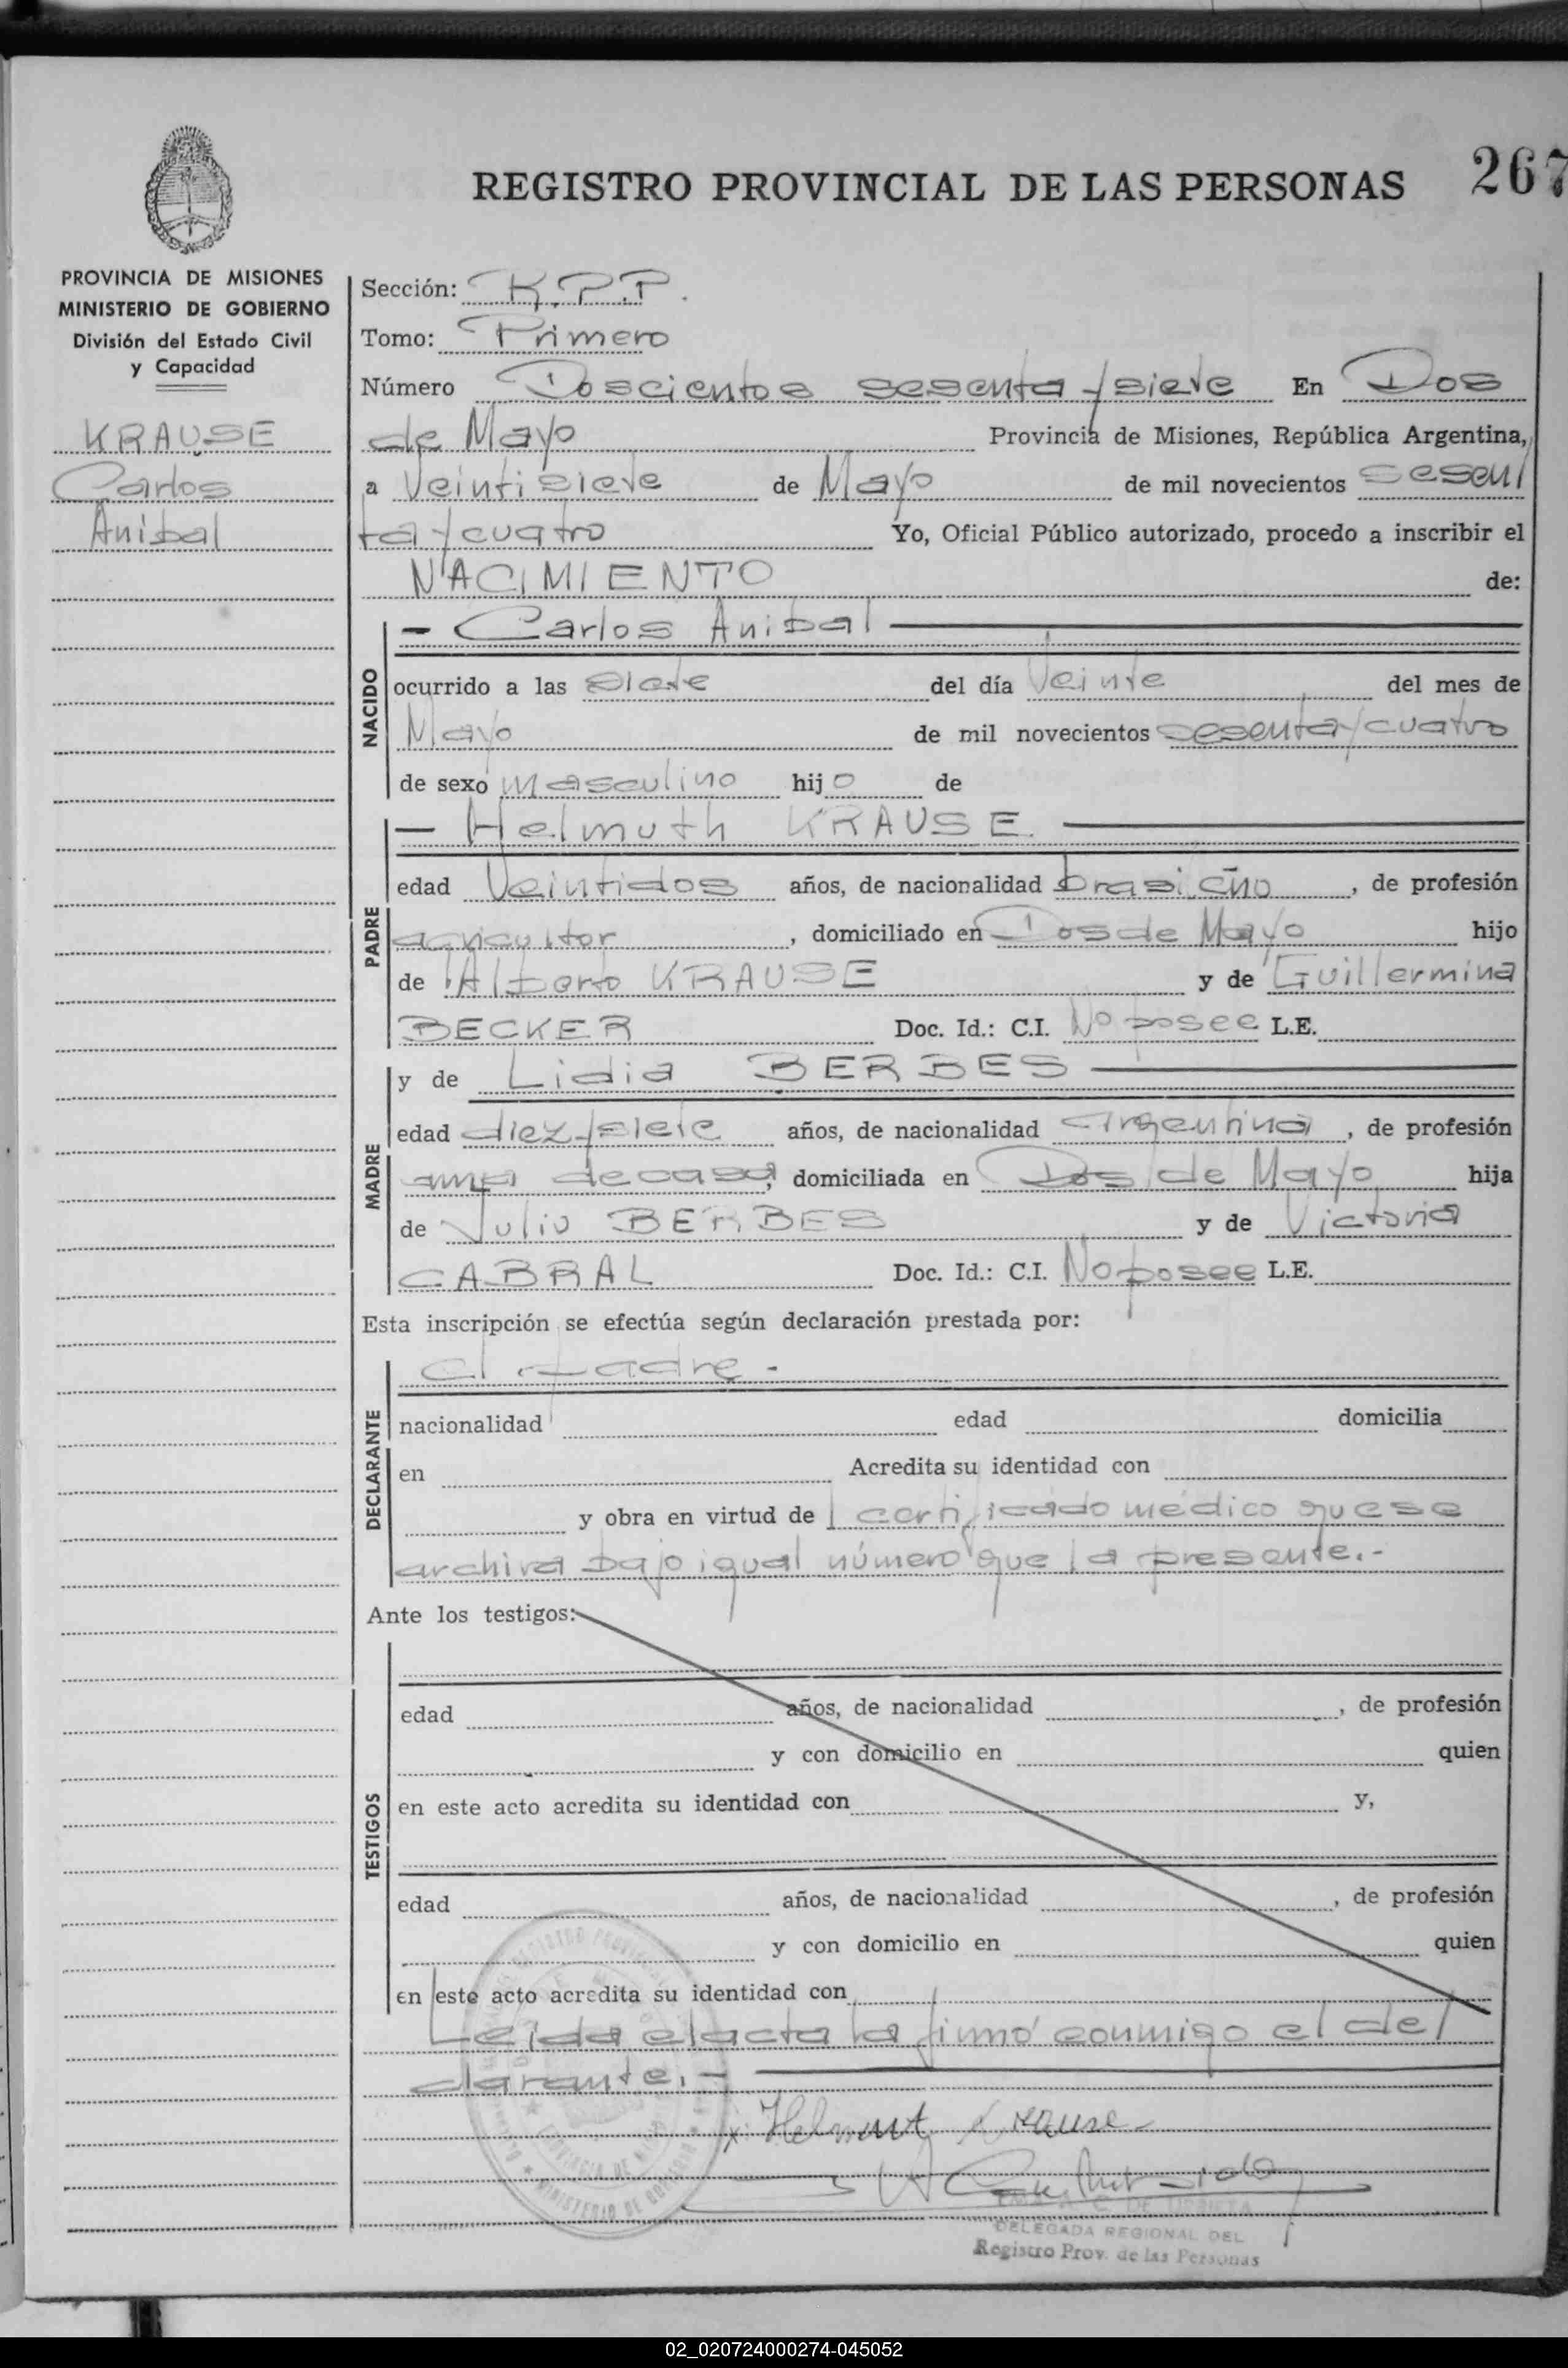 REGISTRO PROVINCIAL DE LAS PERSONAS 267
PROVINCIA DE MISIONES
MINISTERIO DE GOBIERNO
División del Estado Civil
y Capacidad
KRAUSE
Carlos
Anibal
Sección: K.P.P.
Tomo: Primero
Número Doscientos sesenta y siete En Dos
de Mayo Provincia de Misiones, República Argentina,
a Veintisiete de Mayo de mil novecientos sesen/
ta y cuatro Yo, Oficial Público autorizado, procedo a inscribir el
NACIMIENTO de:
NACIDO
— Carlos Anibal
ocurrido a las siete del día Veinte del mes de
Mayo de mil novecientos sesenta y cuatro
de sexo masculino hijo de
PADRE
— Helmuth KRAUSE.
edad Veintidos años, de nacionalidad , de profesión
agricultor , domiciliado en Dos de Mayo hijo
de Alberto KRAUSE y de Guillermina
BECKER Doc. Id.: C.I. No posee L.E.
MADRE
y de Lidia BERBES
edad diez y siete años, de nacionalidad argentina , de profesión
ama de casa, domiciliada en Dos de Mayo hija
de Julio BERBES y de Victoria
CABRAL Doc. Id.: C.I. No posee L.E.
Esta inscripción se efectúa según declaración prestada por:
DECLARANTE
el padre.-
nacionalidad edad domicilia
en Acredita su identidad con
y obra en virtud de certificado médico que se
archiva bajo igual número que la presente.-
Ante los testigos:
TESTIGOS
edad años, de nacionalidad , de profesión
y con domicilio en quien
en este acto acredita su identidad con y,
edad años, de nacionalidad , de profesión
y con domicilio en quien
en este acto acredita su identidad con
Leida el acta la firmó conmigo el de/
clarante.-
x Helmut Krause
DELEGADA REGIONAL DEL
Registro Prov. de las Personas
02_020724000274-045052